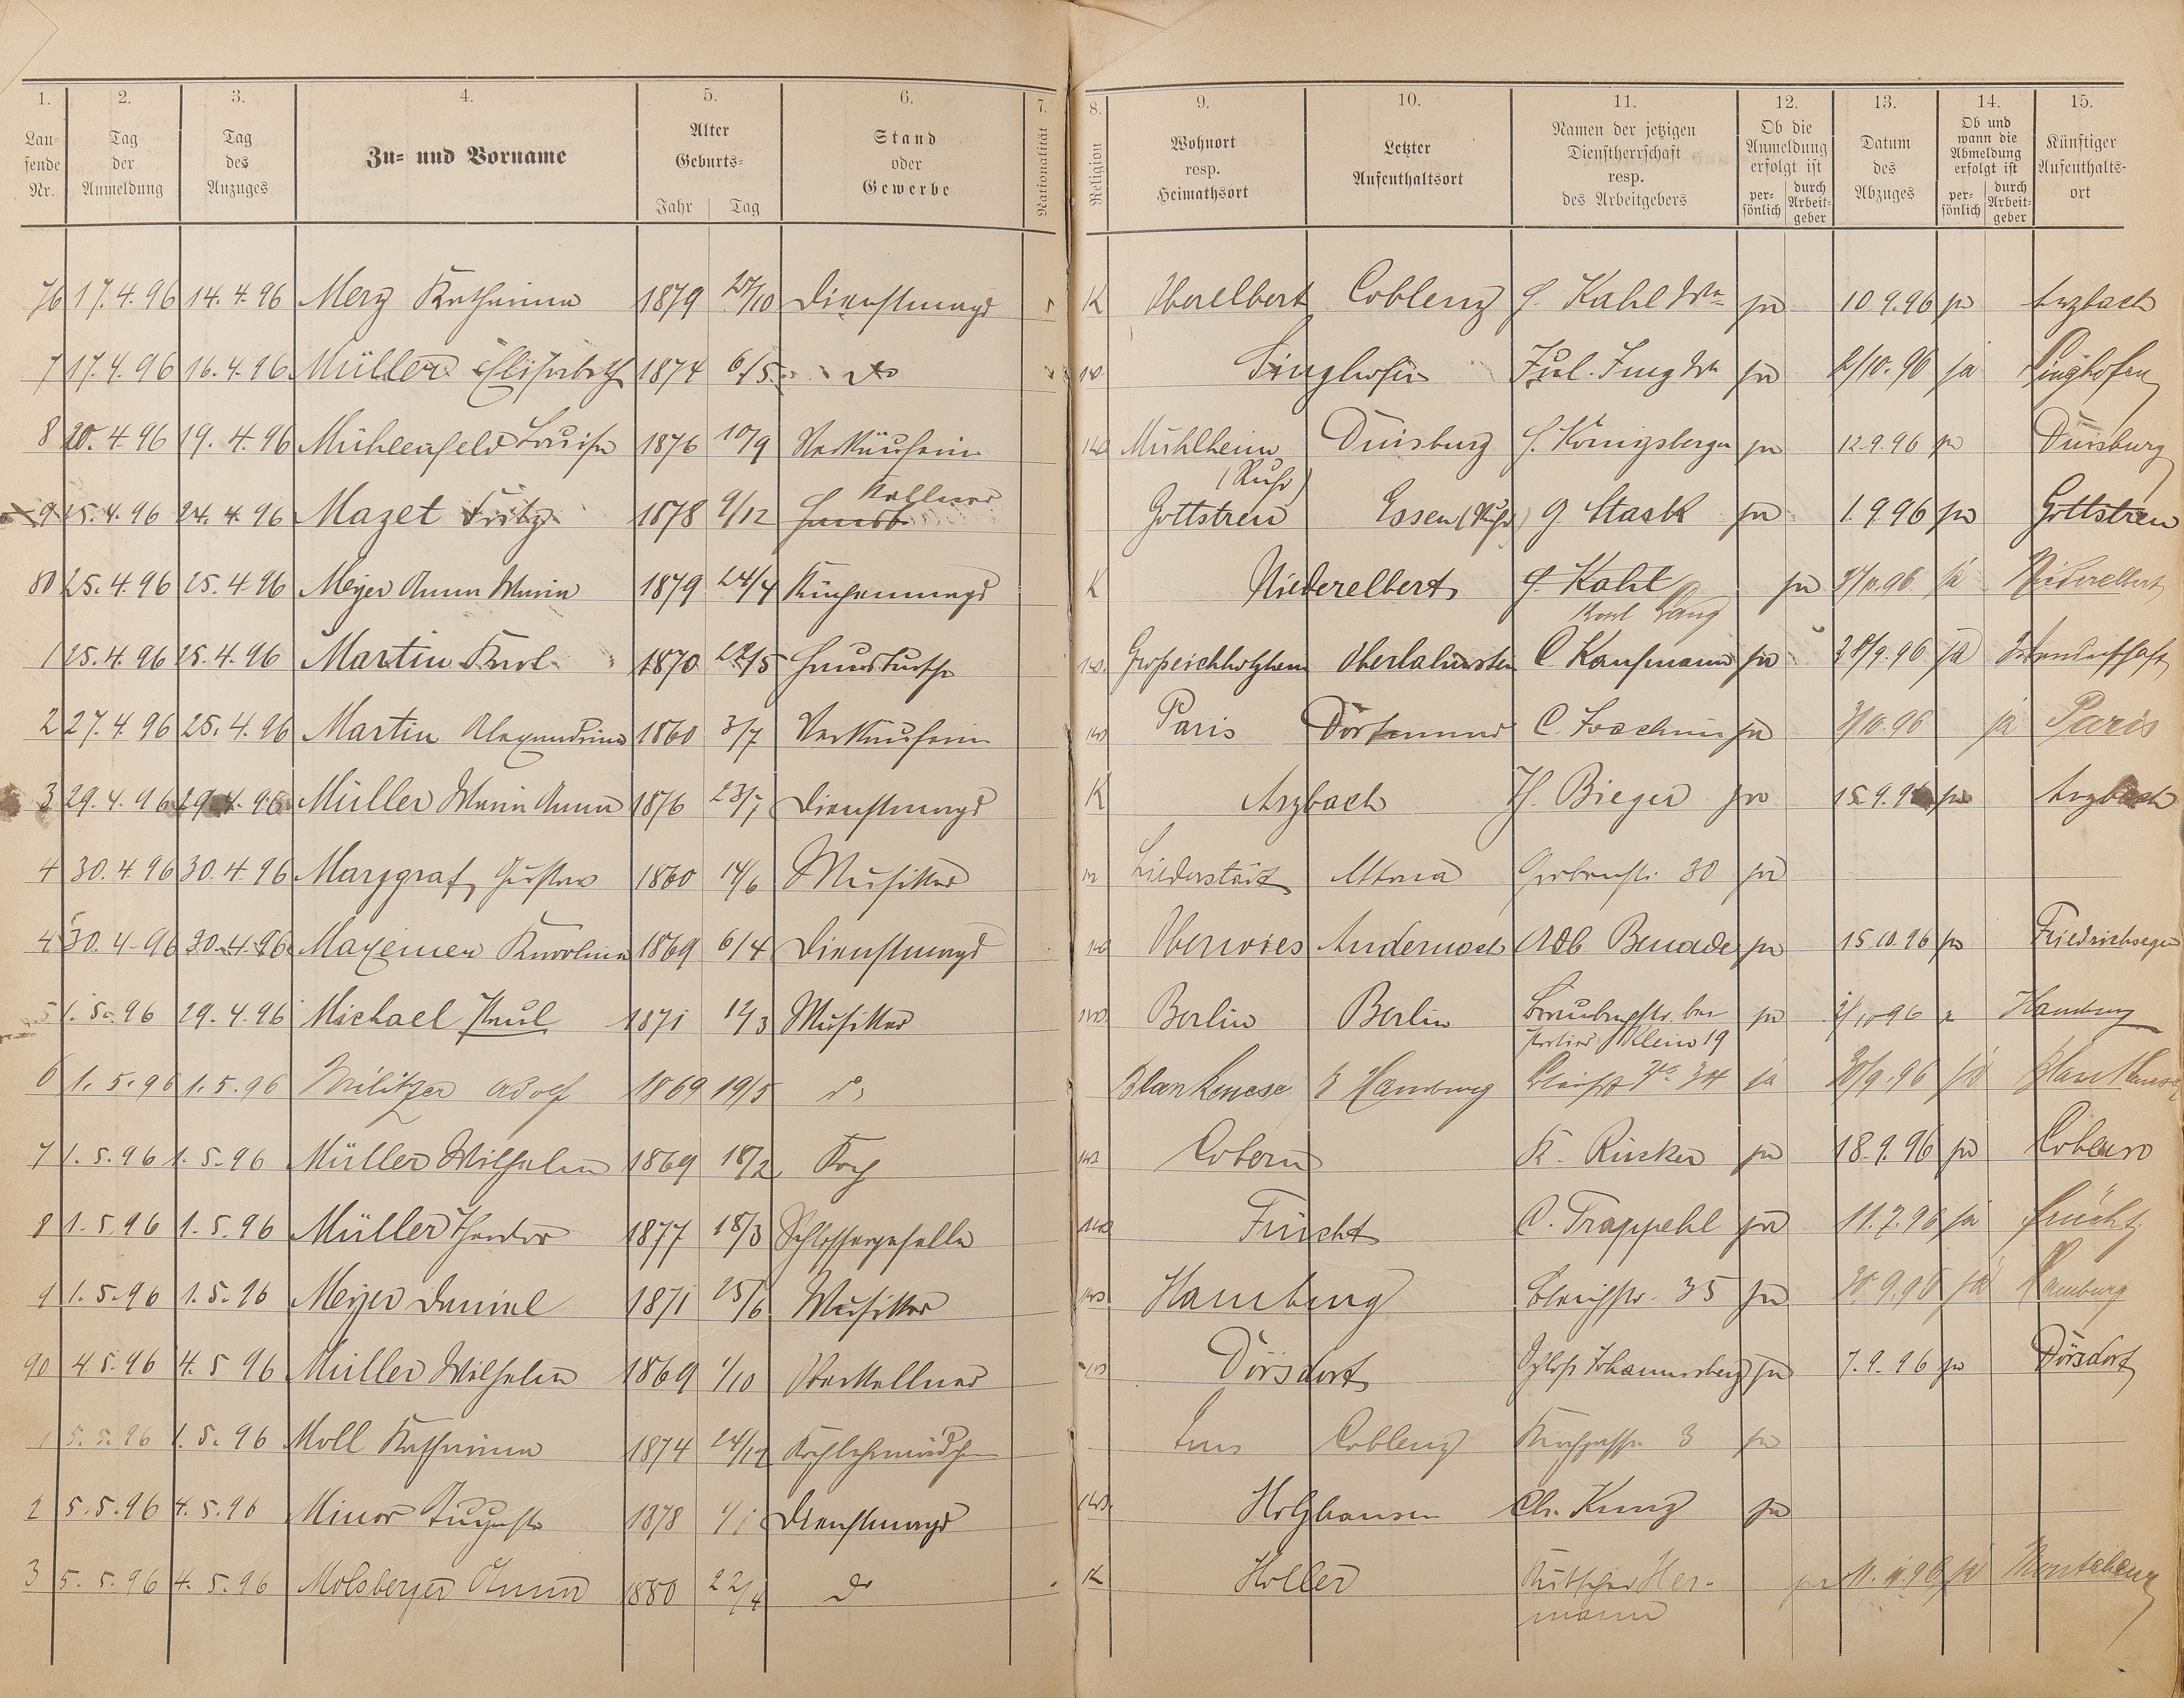 1. 2. 3. 4. 5. 6. 7. 8. 9. 10. 11. 12. 13. 14. 15.
Laufende Nr. Tag der Anmeldung Tag des Anzuges Zu- und Vorname Alter Geburts- Jahr Tag Stand oder Gewerbe Nationalität Religion Wohnort resp. Heimathsort Letzter Aufenthaltsort Namen der jetzigen Dienstherrschaft resp. des Arbeitgebers Ob die Anmeldung erfolgt ist persönlich durch Arbeitgeber Datum des Abzuges Ob und wann die Abmeldung erfolgt ist persönlich durch Arbeitgeber Künftiger Aufenthaltsort
76 17.4.96 14.4.96 Merz Katharina 1879 27/10 Dienstmagd K Oberelbert Coblenz Kahl Ww ja 10.9.96 ja Arzbach
7 17.4.96 16.4.96 Müller Elisabeth 1874 6/5 do Singhofen Jul. Jung Ww ja 2/10.96 ja Singhofen
8 20.4.96 19.4.96 Mühlenfeld Louise 1876 10/9 Verkäuferin Mühlheim Duisburg Königsberger ja 12.9.96 ja Duisburg
(Ruhr)
Kellner
9 25.4.96 24.4.96 Mazet Fritz 1878 9/12 Hausb Gottstreu Essen (Ruhr) G. Stask ja 1.9.96 ja Gottstreu
80 25.4.96 25.4.96 Meyer Anna Maria 1879 24/4 Küchenmagd K Niederelbert Kahl ja 3/10.96 ja Niederelbert
Karl Lang
1 25.4.96 25.4.96 Martin Karl 1870 22/5 Hausbursche Großeichholzheim Oberlahnstein C. Kaufmann ja 28/9.96 ja Wanderschaft
2 27.4.96 25.4.96 Martin Alexandrine 1860 3/7 Verkäuferin Paris Dortmund C. Joachim ja 3/10.96 ja Paris
3 29.4.96 29.4.96 Müller Maria Anna 1876 23/7 Dienstmagd K Arzbach Bieger ja 15.9.96 ja Arzbach
4 30.4.96 30.4.96 Marggraf Gustav 1860 14/6 Musiker Liederstädt Altona Grabenstr. 30 ja
4 30.4.96 30.4.96 Maxeiner Karoline 1869 6/4 Dienstmagd Oberwies Andernach Benade ja 15.10.96 ja Friedrichsegen
5 1.5.96 29.4.96 Michael Paul 1871 Musiker Berlin Berlin Braubacherstr. bei ja 2/10 96 Hamburg
Portier Klein 19
6 1.5.96 1.5.96 Militzer Adolf 1869 19/5 do Blankenese Hamburg Bleichst 34 ja 30/9.96 ja Blankenese
7 1.5.96 1.5.96 Müller Wilhelm 1869 18/2 Koch Cobern K. Rücker ja 18.9.96 ja Cobern
8 1.5.96 1.5.96 Müller Theodor 1877 18/3 Schlossergeselle Frücht C. Trappehl ja 11.7.96 ja Frücht
9 1.5.96 1.5.96 Meyer Daniel 1871 25/6 Musiker Hamburg Bleichstr. 35 ja 30.9.96 ja Hamburg
90 4.5.96 4.5 96 Müller Wilhelm 1869 1/10 Oberkellner Dörsdorf Schloß Johannisberg ja 7.9.96 ja Dörsdorf
1 5.5.96 1.5.96 Moll Katharina 1874 24/12 Kochlehrmädchen Ems Coblenz Kirchgasse 3 ja
2 5.5.96 4.5.96 Minor Auguste 1878 1/1 Dienstmagd Holzhausen Chr. Kunz ja
3 5.5.96 4.5.96 Molsberger Anna 1880 22/4 do K Holler Kutscher Her- ja ja Montabaur
mann